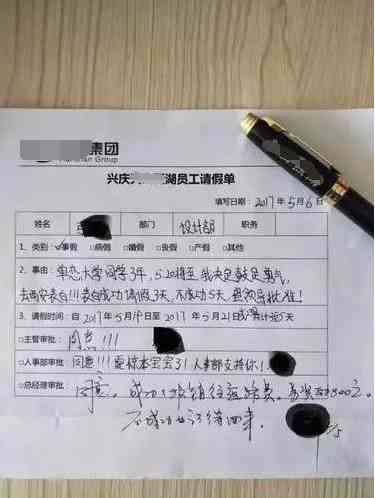 集团
Group
兴庆 湖员工请假单
填写日期:2017年5月6日
姓名 部门 设计部 职务
1、类别:☑事假 □病假 □婚假 □丧假 □产假 □其他
2、事由:单恋大学同学3年,5.20将至我决定鼓足勇气,
去西安表白!!!表白成功请假3天,不成功5天,望领导批准!
3、请假时间:自2017年5月19日至2017年5月21日 计5天
□主管审批:同意!!!
□人事部审批:同意!!! 人事部支持你!
□总经理审批:同意,成功了报销往返路费,
不成功也记得回来.